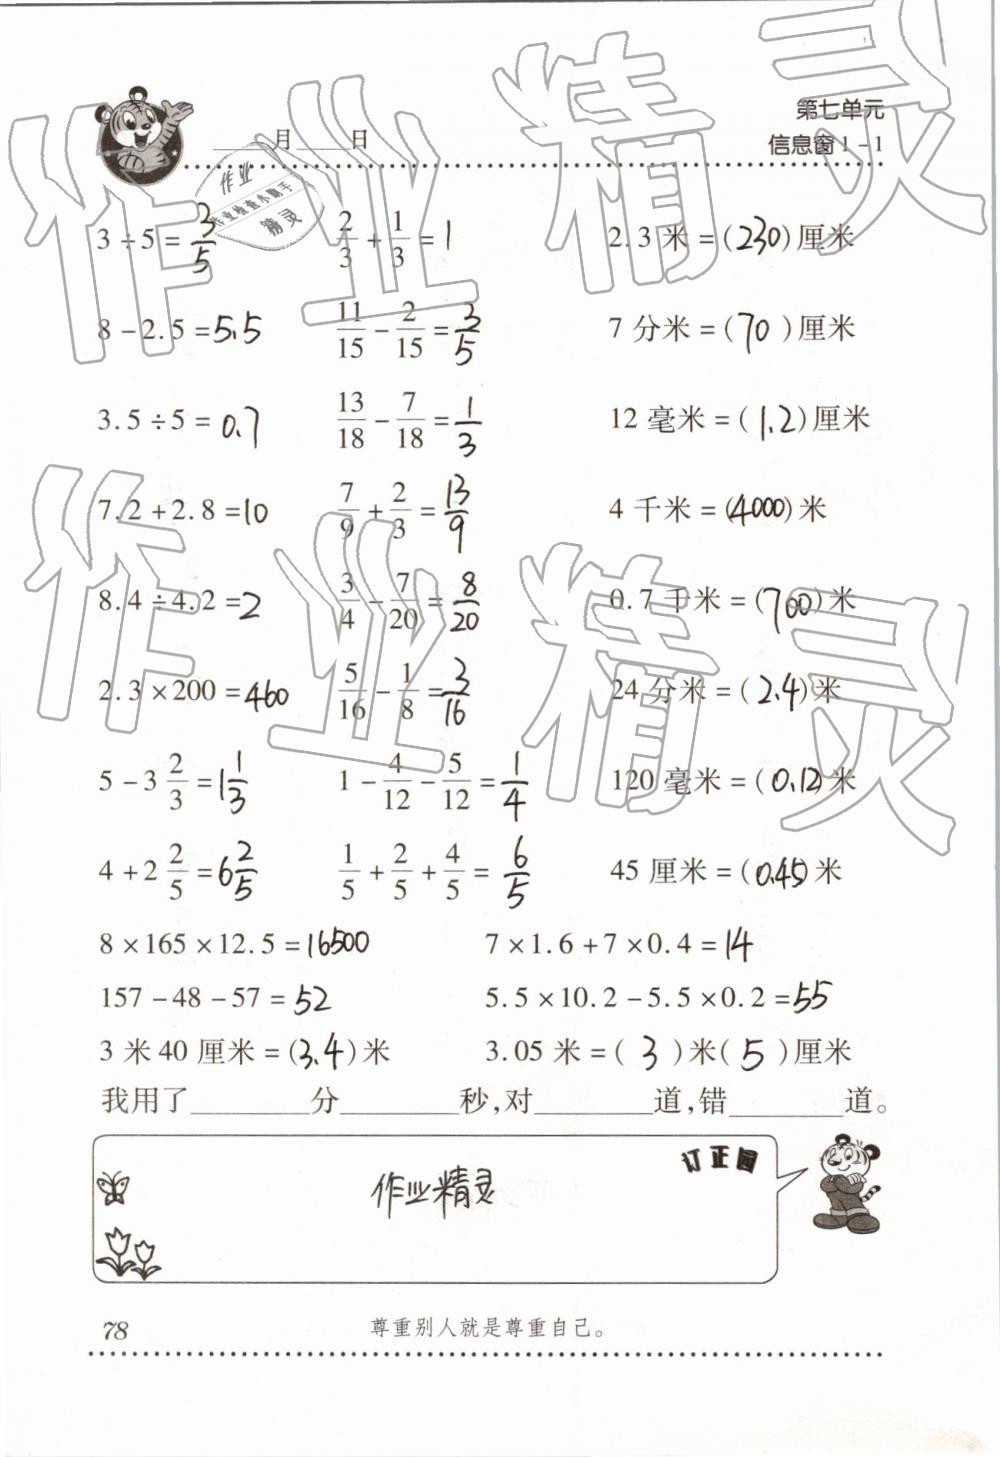 ____月____日
第七单元
信息窗1-1
作业精灵
作业
作业检查小助手
精灵
3÷5=3/5 2/3+1/3=1 2.3米=(230)厘米
8-2.5=5.5 11/15-2/15=3/5 7分米=(70)厘米
3.5÷5=0.7 13/18-7/18=1/3 12毫米=(1.2)厘米
7.2+2.8=10 7/9+2/3=13/9 4千米=(4000)米
作业精灵
8.4÷4.2=2 3/4-7/20=8/20 0.7千米=(700)米
2.3×200=460 5/16-1/8=3/16 24分米=(2.4)米
5-3 2/3=1 1/3 1-4/12-5/12=1/4 120毫米=(0.12)米
4+2 2/5=6 2/5 1/5+2/5+4/5=6/5 45厘米=(0.45)米
8×165×12.5=16500 7×1.6+7×0.4=14
157-48-57=52 5.5×10.2-5.5×0.2=55
3米40厘米=(3.4)米 3.05米=(3)米(5)厘米
我用了____分____秒,对____道,错____道。
订正园
作业精灵
78
尊重别人就是尊重自己。